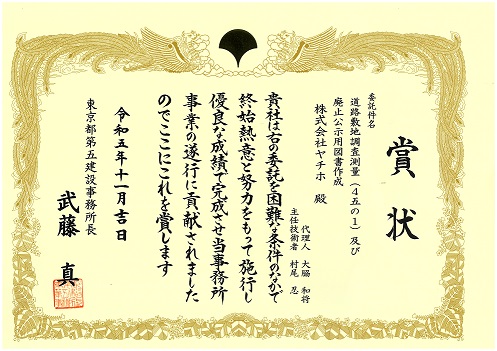 賞状
委託件名
道路敷地調査測量（45の1）及び
廃止公示用図書作成
株式会社ヤチホ 殿
代理人 大脇 和将
主任技術者 村尾 忍
貴社は右の委託を困難な条件のなかで
終始熱意と努力をもって施行し
優良な成績で完成させ当事務所
事業の遂行に貢献されました
のでここにこれを賞します
令和五年十一月吉日
東京都第五建設事務所長
武藤 真